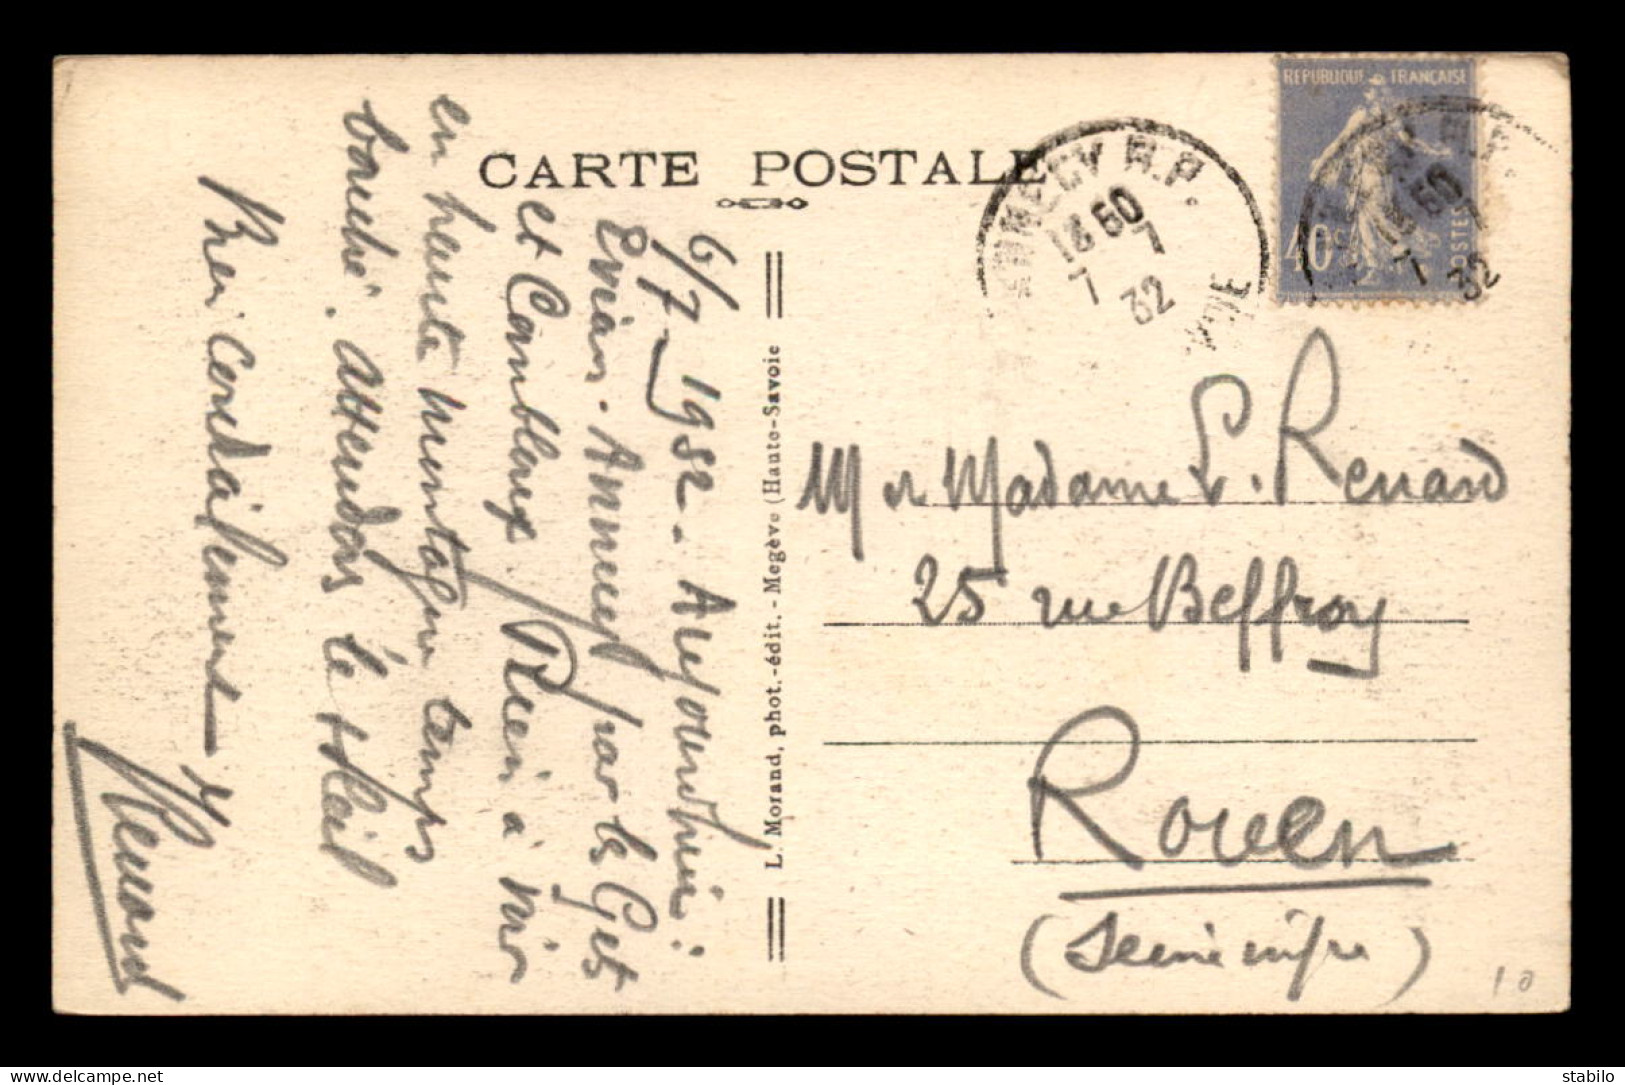 CARTE POSTALE
6/7 1932 - Aujourd'hui
Evian - Annecy par les Gets
et Combloux Rien à voir
en haute montagne temps
bouché. Attendons le soleil
Bien cordialement
L. Morand, phot.-édit. - Megève (Haute-Savoie
RÉPUBLIQUE FRANÇAISE
40 c
POSTES
ANNECY R.P.
18 50
7 7
32
M et Madame L. Renard
25 rue Beffroy
Rouen
(Seine infre)
10
stabilo